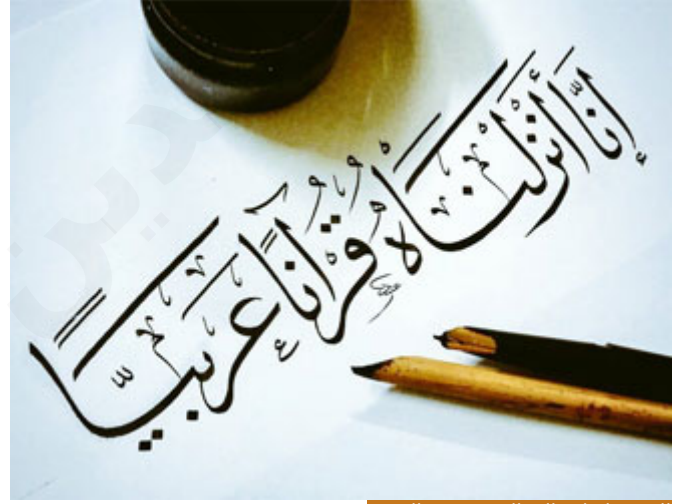 إنَّا أَنْزَلْنَاهُ قُرْآنًا عَرَبِيًّا